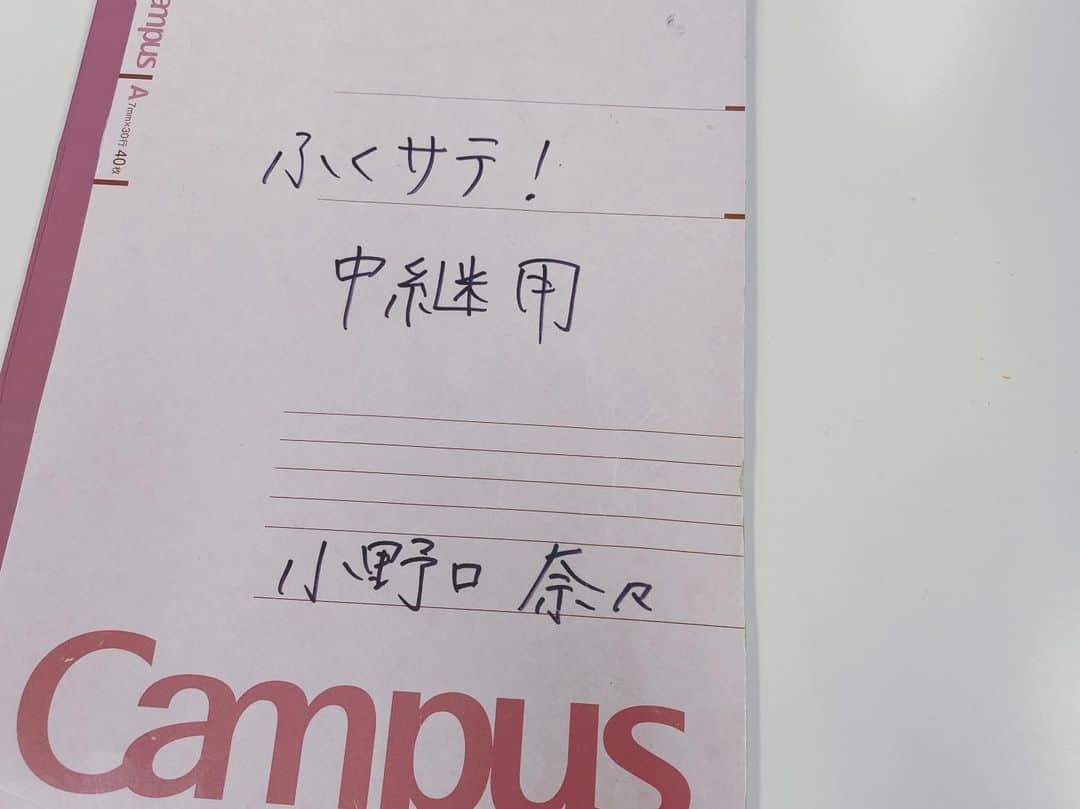 Campus
A
7mm×30行 40枚
ふくサテ!
中継用
小野口 奈々
Campus